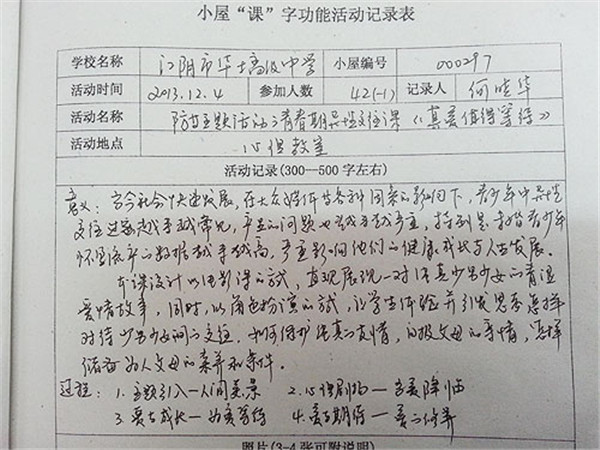 小屋“课”字功能活动记录表
学校名称 江阴市华士高级中学 小屋编号 000297
活动时间 2013.12.4 参加人数 42(-1) 记录人 何晓华
活动名称 防艾主题活动之青春期异性交往课《真爱值得等待》
活动地点 心理教室
活动记录(300—500字左右)
意义：当今社会快速发展，在大众媒体等各种因素的影响下，青少年中异性
交往过密越来越常见，产生的问题也越来越严重，特别是未婚青少年
怀孕流产的数据越来越高，严重影响他们的健康成长与人生发展。
本课设计以电影课的方式，直观展现一对纯真少男少女的青涩
爱情故事，同时，以角色扮演的方式，让学生体验并引发思考怎样
对待少男少女间的交往，如何保护纯真的友情，回报父母的亲情，怎样
储备为人父母的素养和条件。
过程：1.主题引入—人间美景 2.心理剧场—当爱降临
3.爱与成长—为爱等待 4.爱与期待—爱的修养
照片(3-4张可附说明)